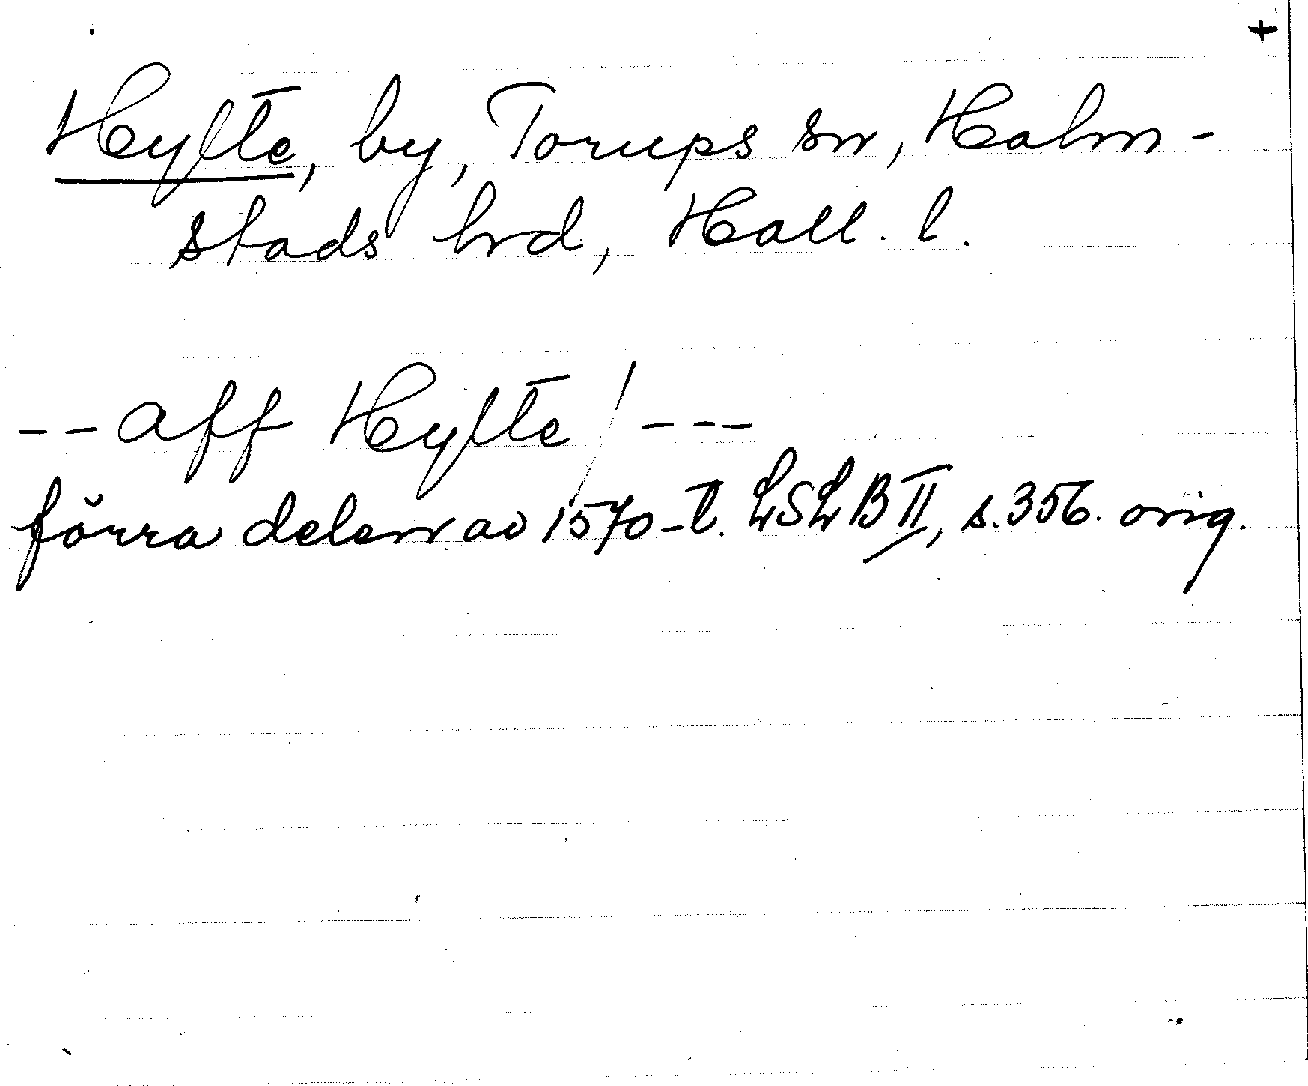 +
Hylte, by, Torups sn, Halm-
stads hrd, Hall. l.
-- aff Hylte / ---
förra delen av 1570-t. LSLB II, s. 356. orig.